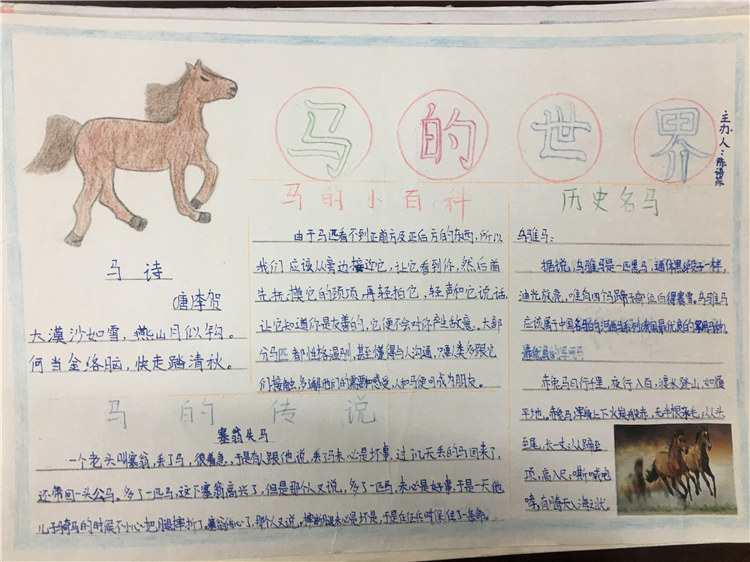 马的世界
主办人：陈
马诗
(唐)李贺
大漠沙如雪，燕山月似钩。
何当金络脑，快走踏清秋。
马的小百科
由于马匹看不到正前方及正后方的东西，所以
我们应该从旁边接近它，让它看到你，然后首
先抚摸它的颈项，再轻拍它，轻声和它说话，
让它知道你是友善的，它便不会对你产生敌意。大部
分马匹都性格温别，甚至懂得与人沟通，只要人类多跟它
们接触，多了解他们的需要和感受，人和马便可成为朋友。
历史名马
乌骓马：
据说，乌骓马是一匹黑马，通体黑缎子一样，
油光放亮，唯有四个马蹄子部位白得赛雪。乌骓马
应该属于中国名马的河曲马系列
赤兔马日行千里，夜行八百，渡水登山，如履
平地，赤兔马浑身上下火炭般赤，无半根杂毛；从头
至尾，长一丈；从蹄至
项，高八尺；嘶喊咆
哮，有腾天入海之状
马的传说
塞翁失马
一个老头叫塞翁，丢了马，很着急，于是有人跟他说，丢了马未必是坏事，过几天丢的马回来了，
还带回一头公马。多了一匹马，这下塞翁高兴了，但是那个又说，多了一匹马，未必是好事，于是一天他
儿子骑马的时候不小心把腿摔折了，塞翁伤心了，那个人又说，摔断腿未必是坏是，于是在征兵时保住了一条命。